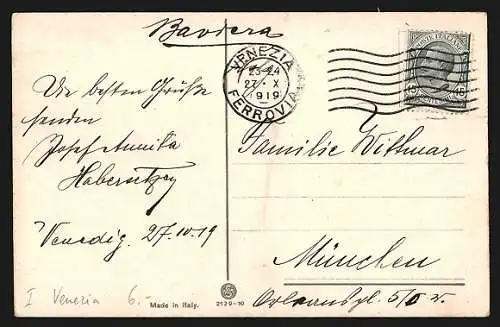 Baviera
VENEZIA
23-24
27 · X
1919
FERROVIA
POSTE ITALIANE
15 15
Die besten Grüße
senden
Josef Annika
Venedig. 27.10.19
Familie Wittmar
München
Orleanspl. 5/0 r.
I Venezia 6.-
Made in Italy.
2129-10